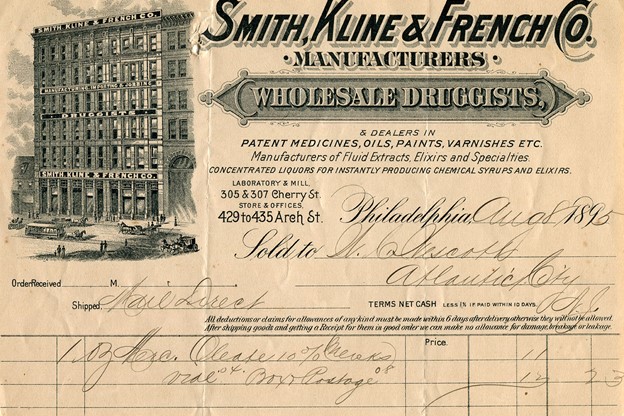 SMITH, KLINE & FRENCH CO.
MANUFACTURING, IMPORTING & JOBBING
DRUGGISTS.
SMITH, KLINE & FRENCH CO.
SMITH, KLINE & FRENCH CO.
·MANUFACTURERS·
WHOLESALE DRUGGISTS,
& DEALERS IN
PATENT MEDICINES, OILS, PAINTS, VARNISHES ETC.
Manufacturers of Fluid Extracts, Elixirs and Specialties.
CONCENTRATED LIQUORS FOR INSTANTLY PRODUCING CHEMICAL SYRUPS AND ELIXIRS.
LABORATORY & MILL,
305 & 307 Cherry St.
STORE & OFFICES,
429 to 435 Arch St.
Philadelphia, Aug 8 1895
Sold to W.
Atlantic City
Order Received M.
Shipped Mail Direct
TERMS NET CASH LESS 1% IF PAID WITHIN 10 DAYS. N.J.
All deductions or claims for allowances of any kind must be made within 6 days after delivery otherwise they will not be allowed.
After shipping goods and getting a Receipt for them in good order we can make no allowance for damage, breakage or leakage.
Price.
1 oz Merc. Oleate 10% Mercks 11
vial 04 Box & Postage 08 12 23